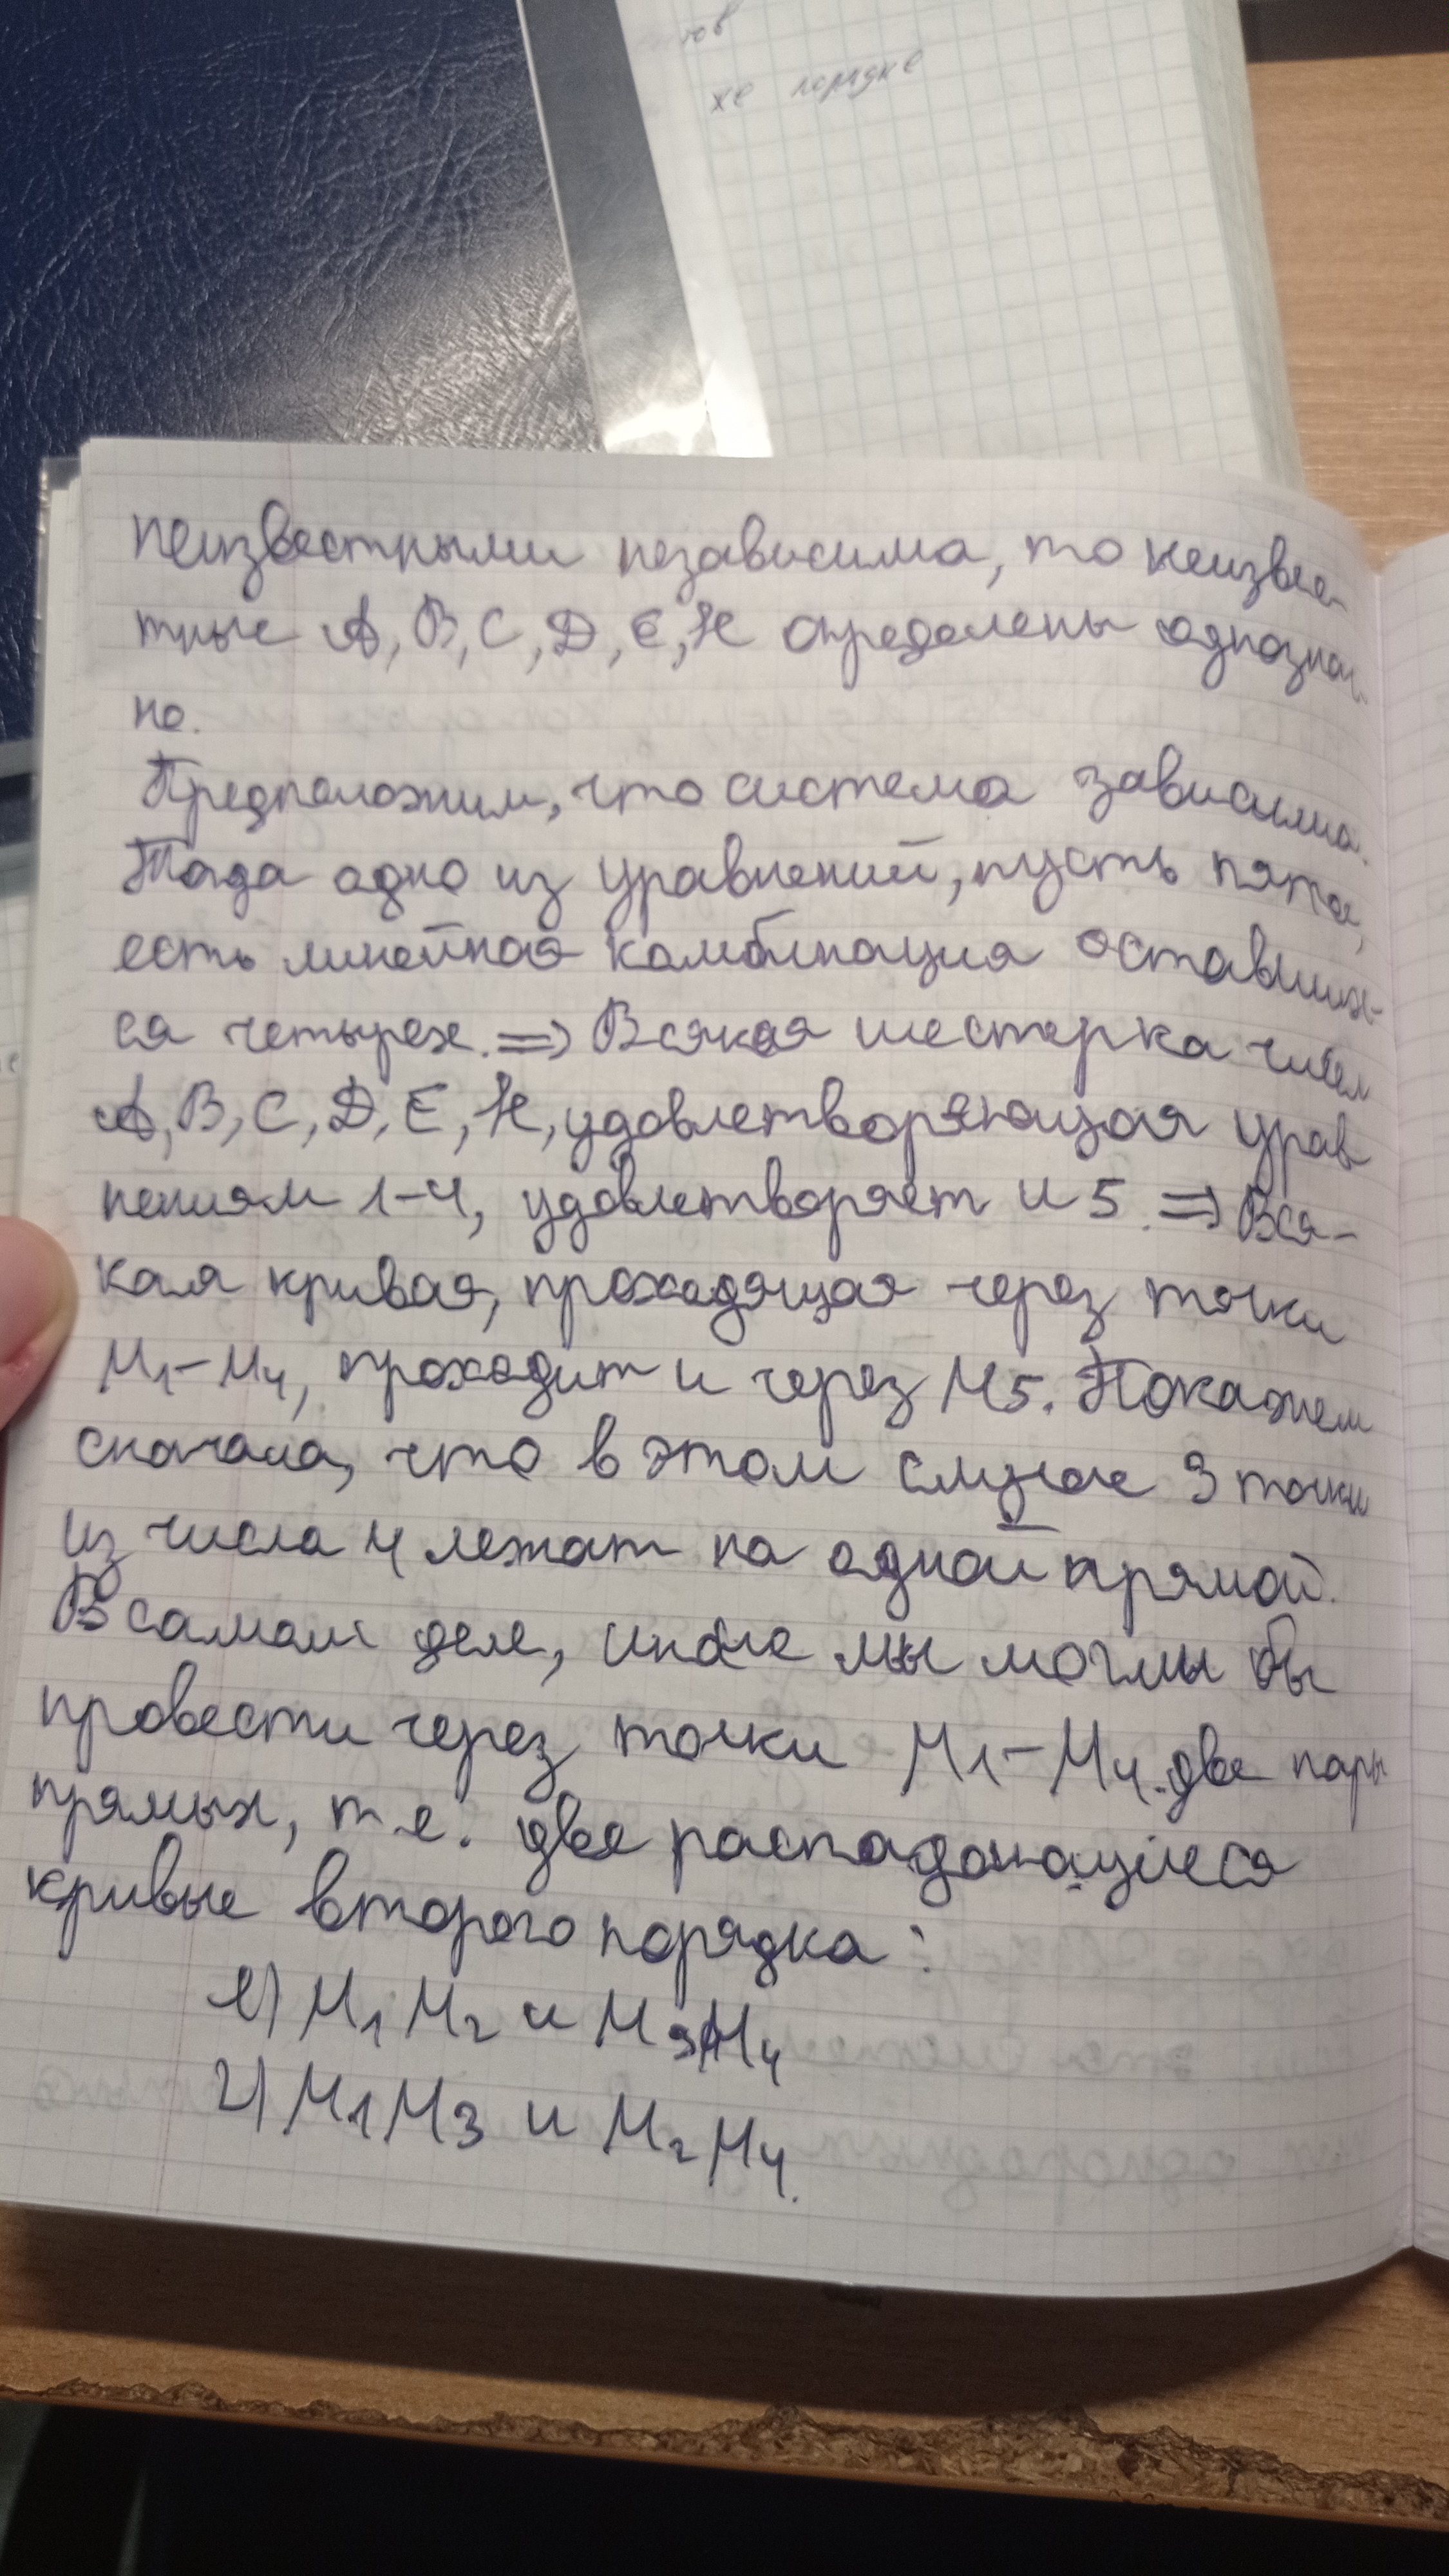 ов
же порядке
неизвестными независима, то неизвес-
тные A, B, C, D, E, H определены однознач-
но.
Предположим, что система зависима.
Тогда одно из уравнений, пусть пятое,
есть линейная комбинация оставших-
ся четырех. => Всякая шестерка чисел
A, B, C, D, E, H, удовлетворяющая урав
нениям 1-4, удовлетворяет и 5. => Вся-
кая кривая, проходящая через точки
M1-M4, проходит и через M5. Покажем
сначала, что в этом случае 3 точки
из числа 4 лежат на одной прямой.
В самом деле, иначе мы могли бы
провести через точки M1-M4 две пары
прямых, т.е. две распадающиеся
кривые второго порядка:
1) M1M2 и M3M4
2) M1M3 и M2M4.